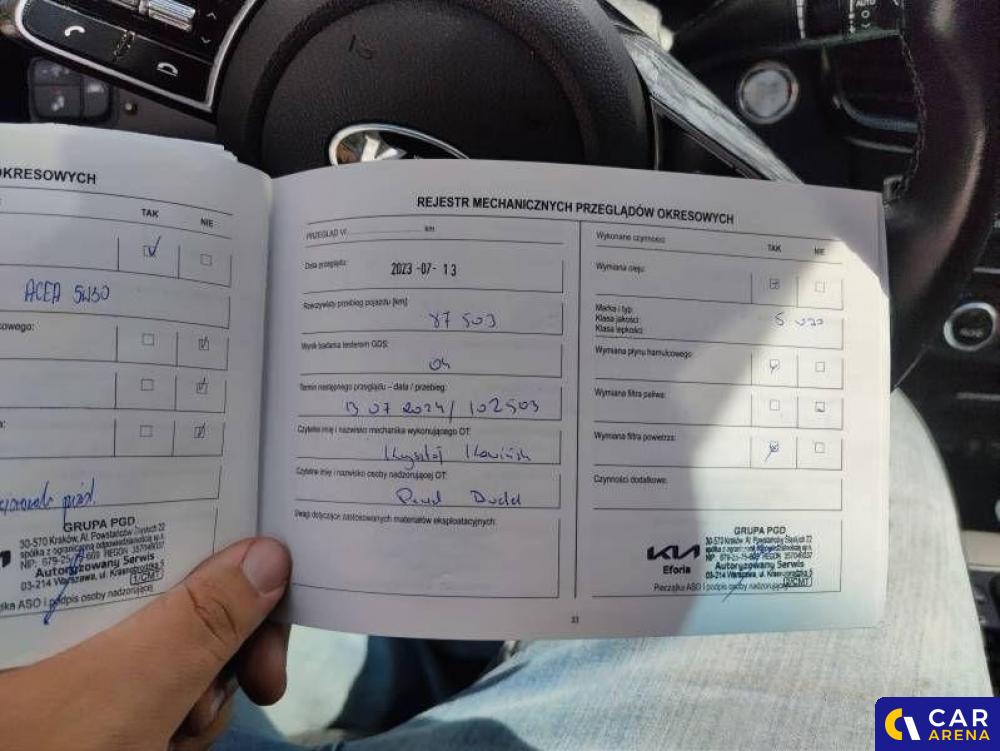 OKRESOWYCH
TAK NIE
ACEA 5W30
GRUPA PGD
30-570 Kraków, Al. Powstańców Śląskich 22
spółka z ograniczoną odpowiedzialnością sp.k.
Autoryzowany Serwis
03-214 Warszawa, ul. Krasnobrodzka 5
1/CMT
ASO i podpis osoby nadzorującej
REJESTR MECHANICZNYCH PRZEGLĄDÓW OKRESOWYCH
PRZEGLĄD VI km
Data przeglądu: 2023-07-13
Rzeczywisty przebieg pojazdu [km]
87 503
Wynik badania testerem GDS:
Termin następnego przeglądu – data / przebieg:
13 07 2024 / 102503
Czytelne imię i nazwisko mechanika wykonującego OT:
Czytelne imię i nazwisko osoby nadzorującej OT:
Uwagi dotyczące zastosowanych materiałów eksploatacyjnych:
33
Wykonane czynności: TAK NIE
Wymiana oleju:
Marka i typ:
Klasa jakości:
Klasa lepkości:
Wymiana płynu hamulcowego:
Wymiana filtra paliwa:
Wymiana filtra powietrza:
Czynności dodatkowe:
GRUPA PGD
30-570 Kraków, Al. Powstańców Śląskich 22
spółka z ograniczoną odpowiedzialnością sp.k.
KIA
Eforia
Autoryzowany Serwis
03-214 Warszawa, ul. Krasnobrodzka 5
Pieczątka ASO i podpis osoby nadzorującej
CAR
ARENA